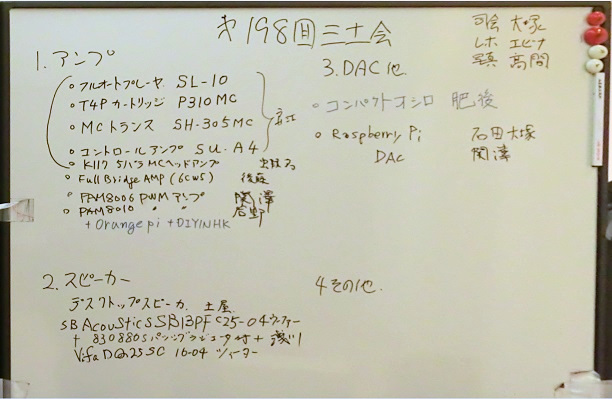 第198回三土会
司会 大塚
レポ エビナ
写真 高間
1. アンプ
○ フルオートプレーヤ SL-10
○ T4P カートリッジ P310MC
○ MCトランス SH-305MC
○ コントロールアンプ SU-A4
○ K117 5パラMCヘッドアンプ
○ Full Bridge AMP (6CW5) 後藤
○ PAM8006 PWMアンプ 関澤
○ PAM8010 〃 〃
+ Orange pi + DIYINHK
2. スピーカー
デスクトップスピーカ 土屋
SB Acoustics SB13PFC25-04 ウーファー
+ 830880 5パッシブラジエータ付 +
Vifa DQ25SC 16-04 ツィーター
3. DAC他
○ コンパクトオシロ 肥後
○ Raspberry Pi 石田大塚
DAC 関澤
4 その他.